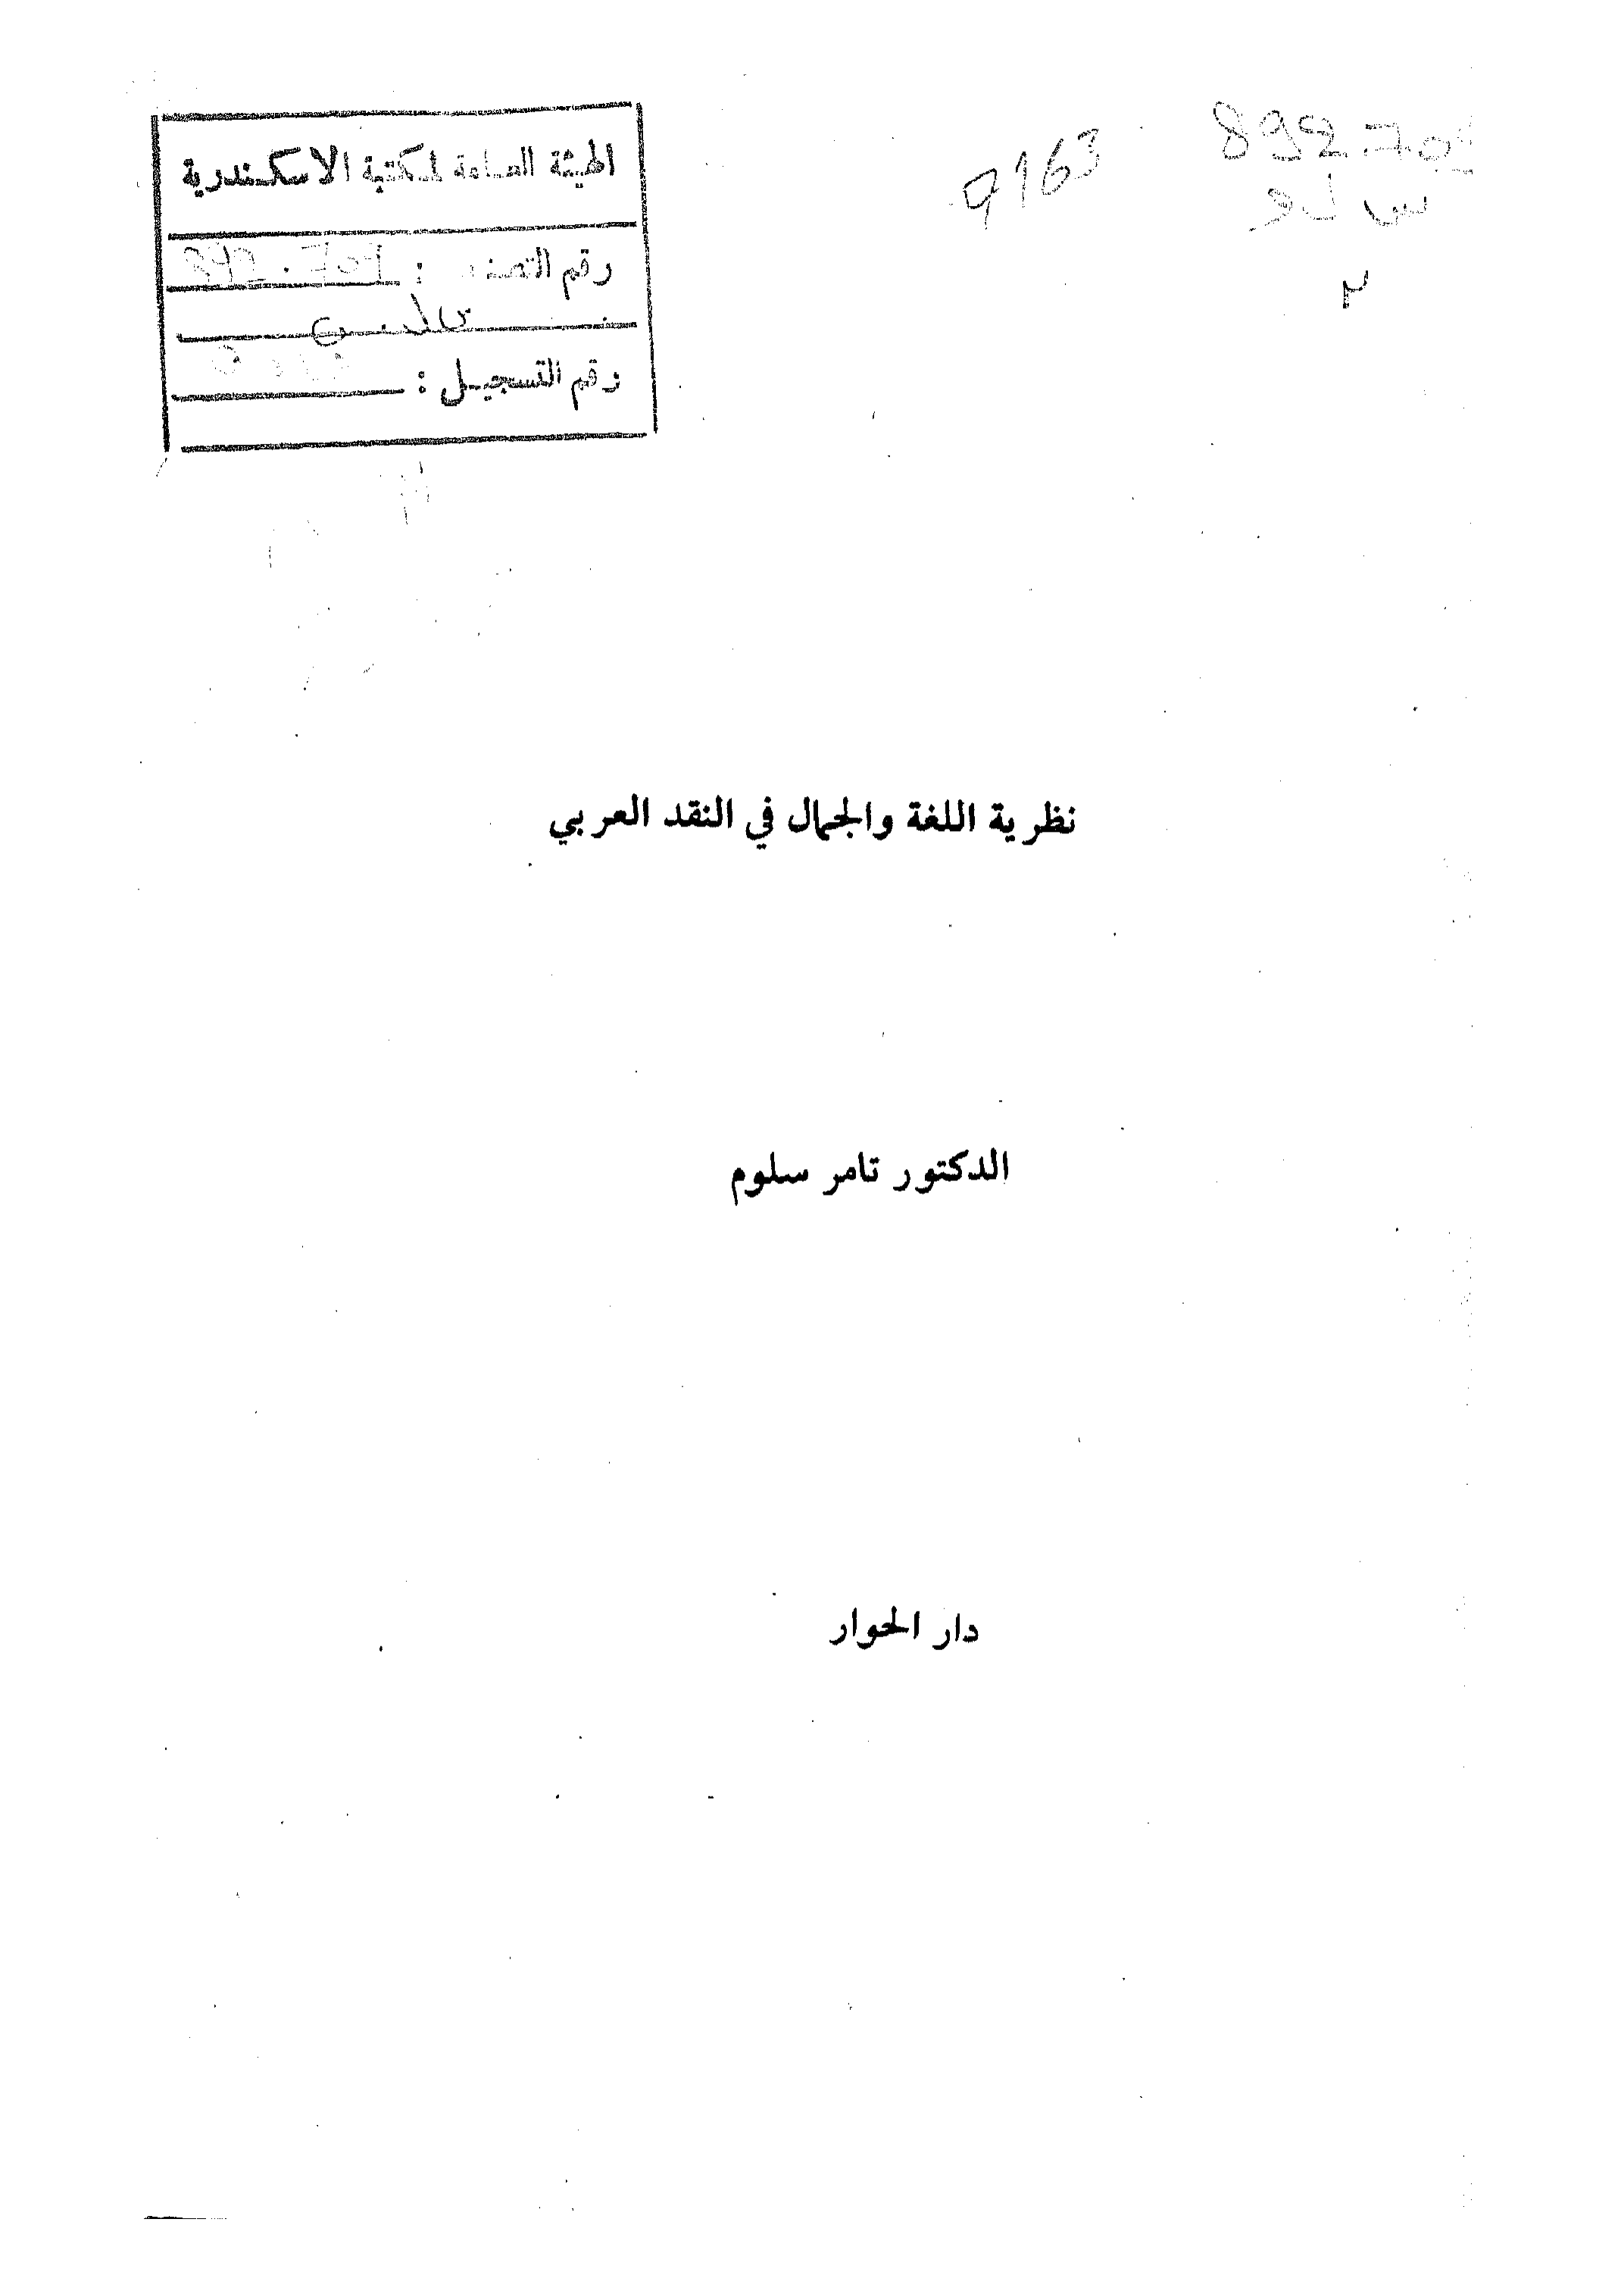 الهيئة العامة لمكتبة الاسكندرية
رقم التصنيف :
رقم التسجيل :
9163
نظرية اللغة والجمال في النقد العربي
الدكتور تامر سلوم
دار الحوار